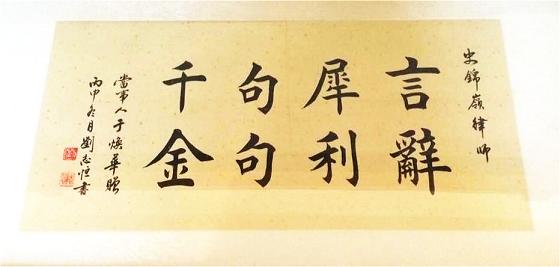 史錦嶺律師
言辭
犀利
句句
千金
當事人于煥華贈
丙申冬月劉志恒書